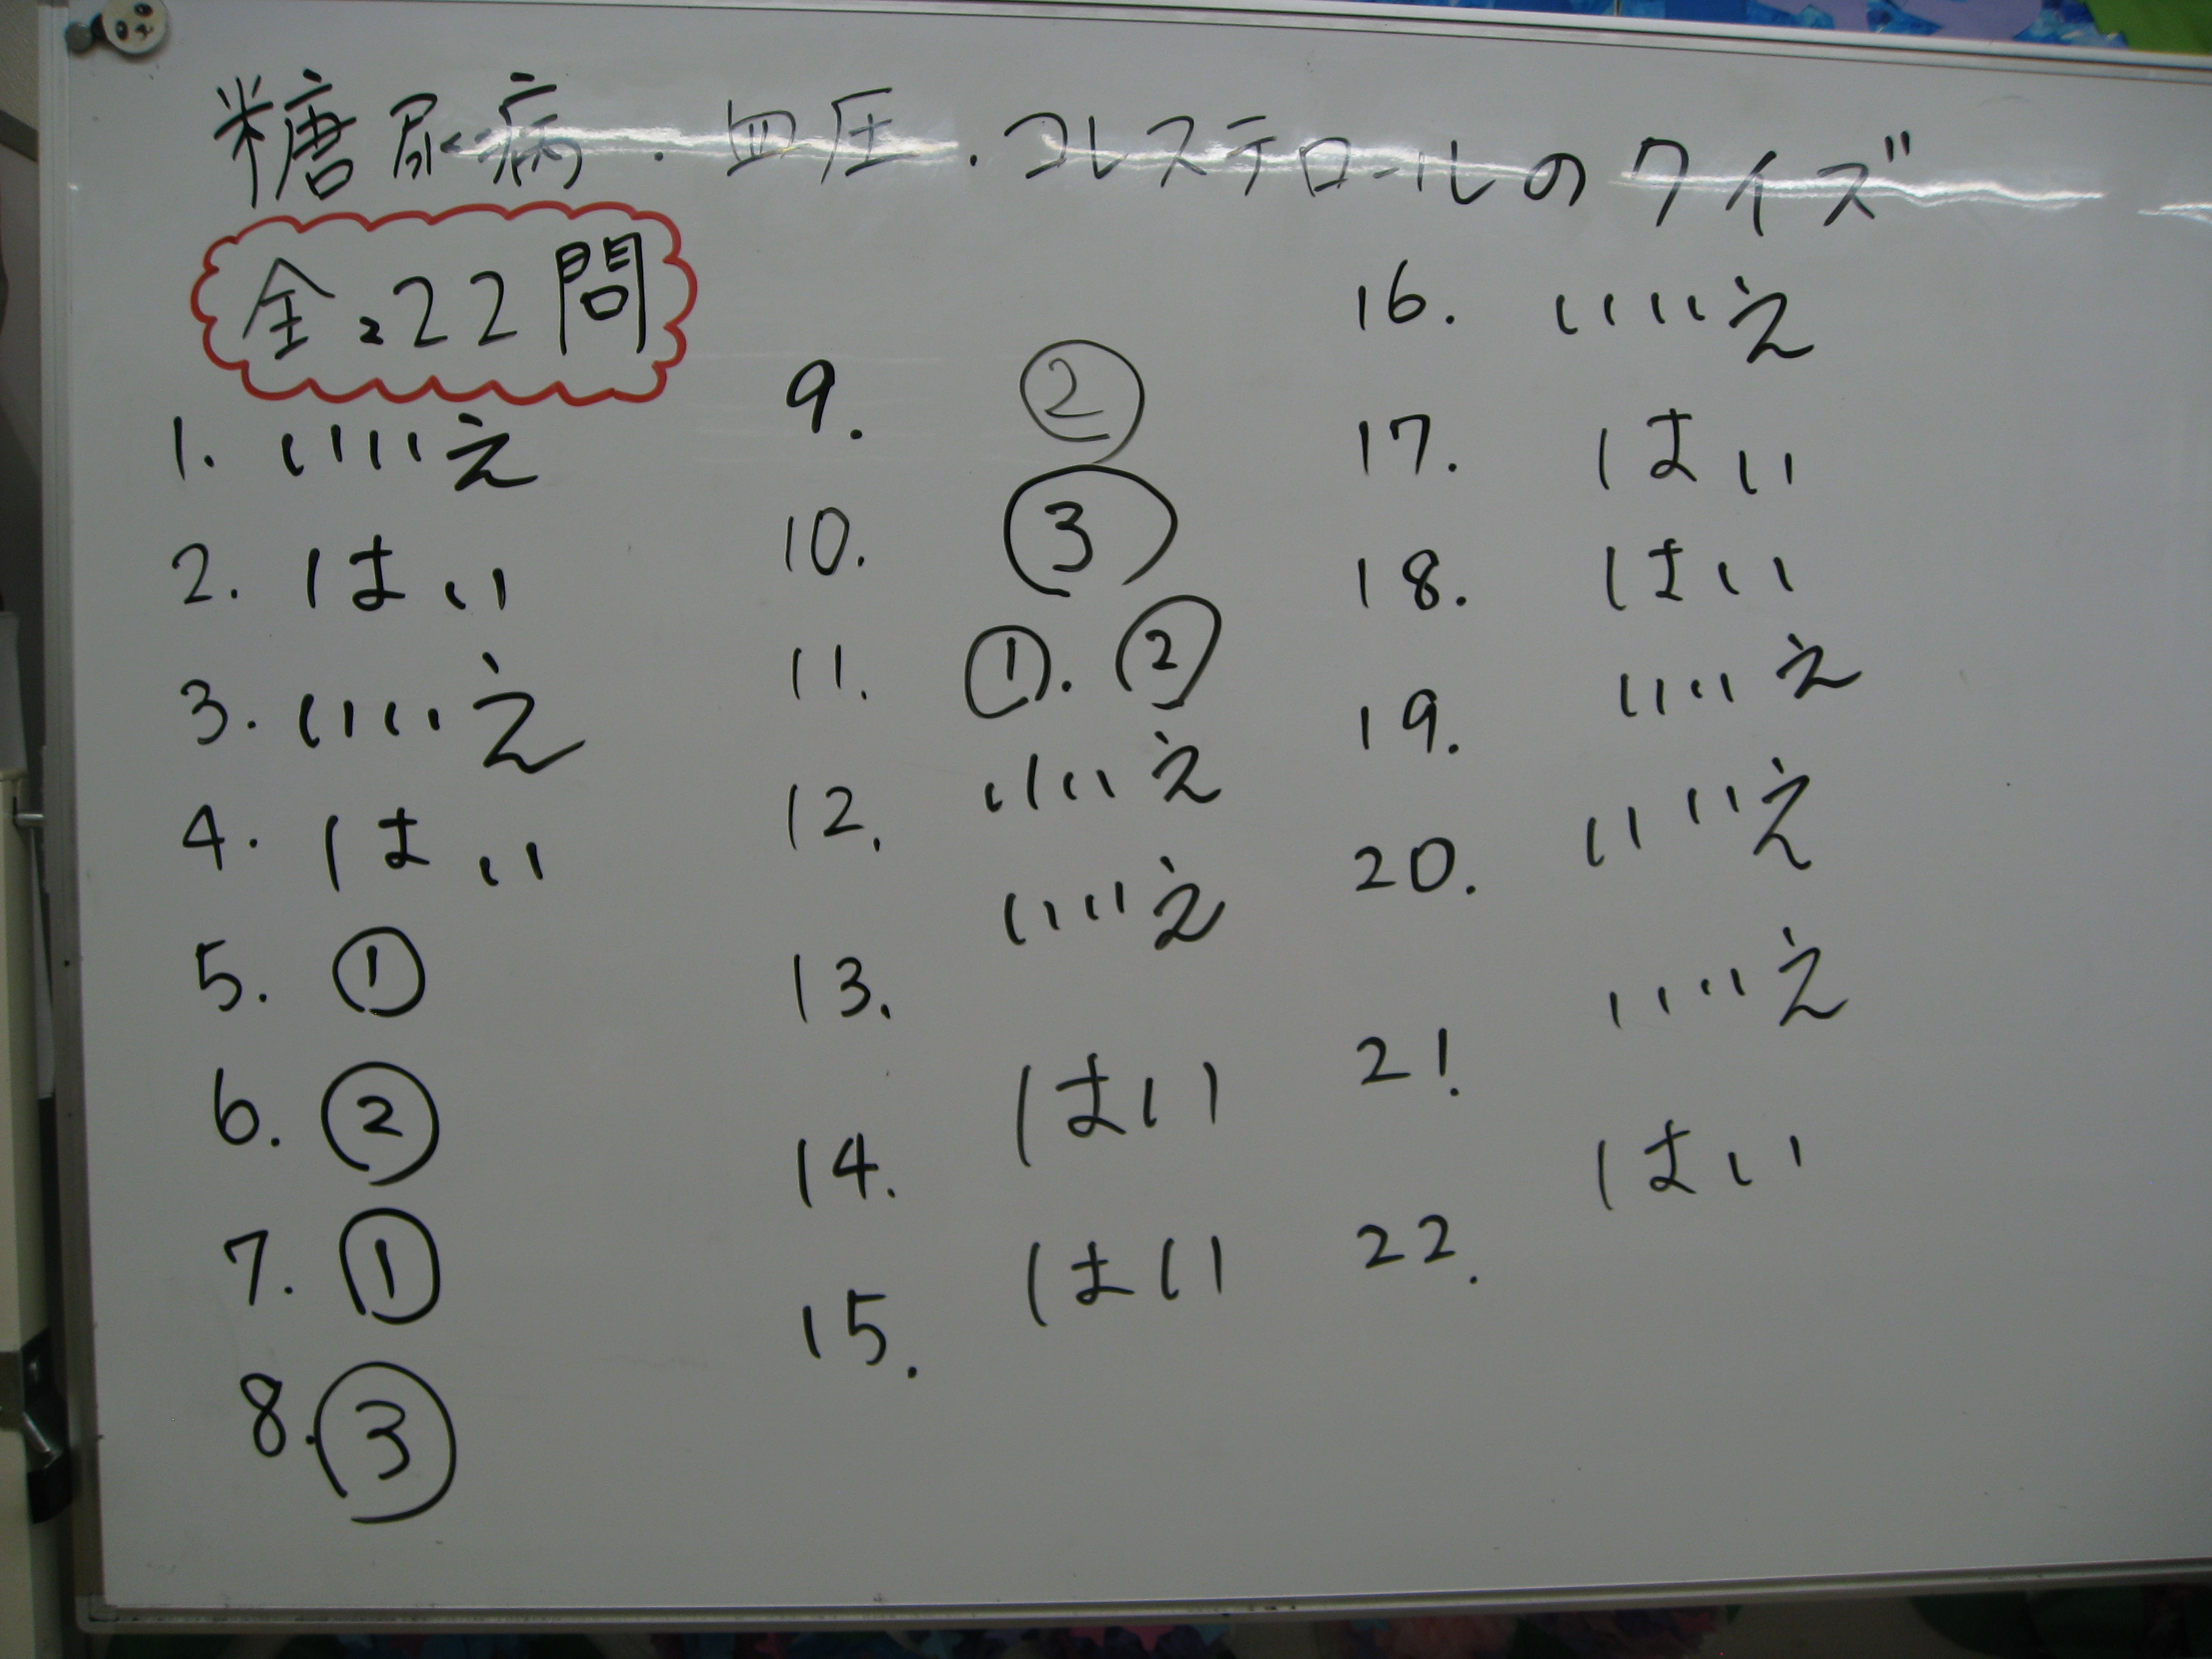 糖尿病・血圧・コレステロールのクイズ
全22問
1. いいえ
2. はい
3. いいえ
4. はい
5. ①
6. ②
7. ①
8. ③
9. ②
10. ③
11. ①.②
12. いいえ
13. いいえ
14. はい
15. はい
16. いいえ
17. はい
18. はい
19. いいえ
20. いいえ
21. いいえ
22. はい